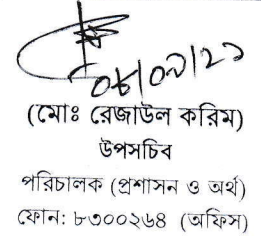 (মোঃ রেজাউল করিম)
উপসচিব
পরিচালক (প্রশাসন ও অর্থ)
ফোন: ৮৩০০২৬৪ (অফিস)